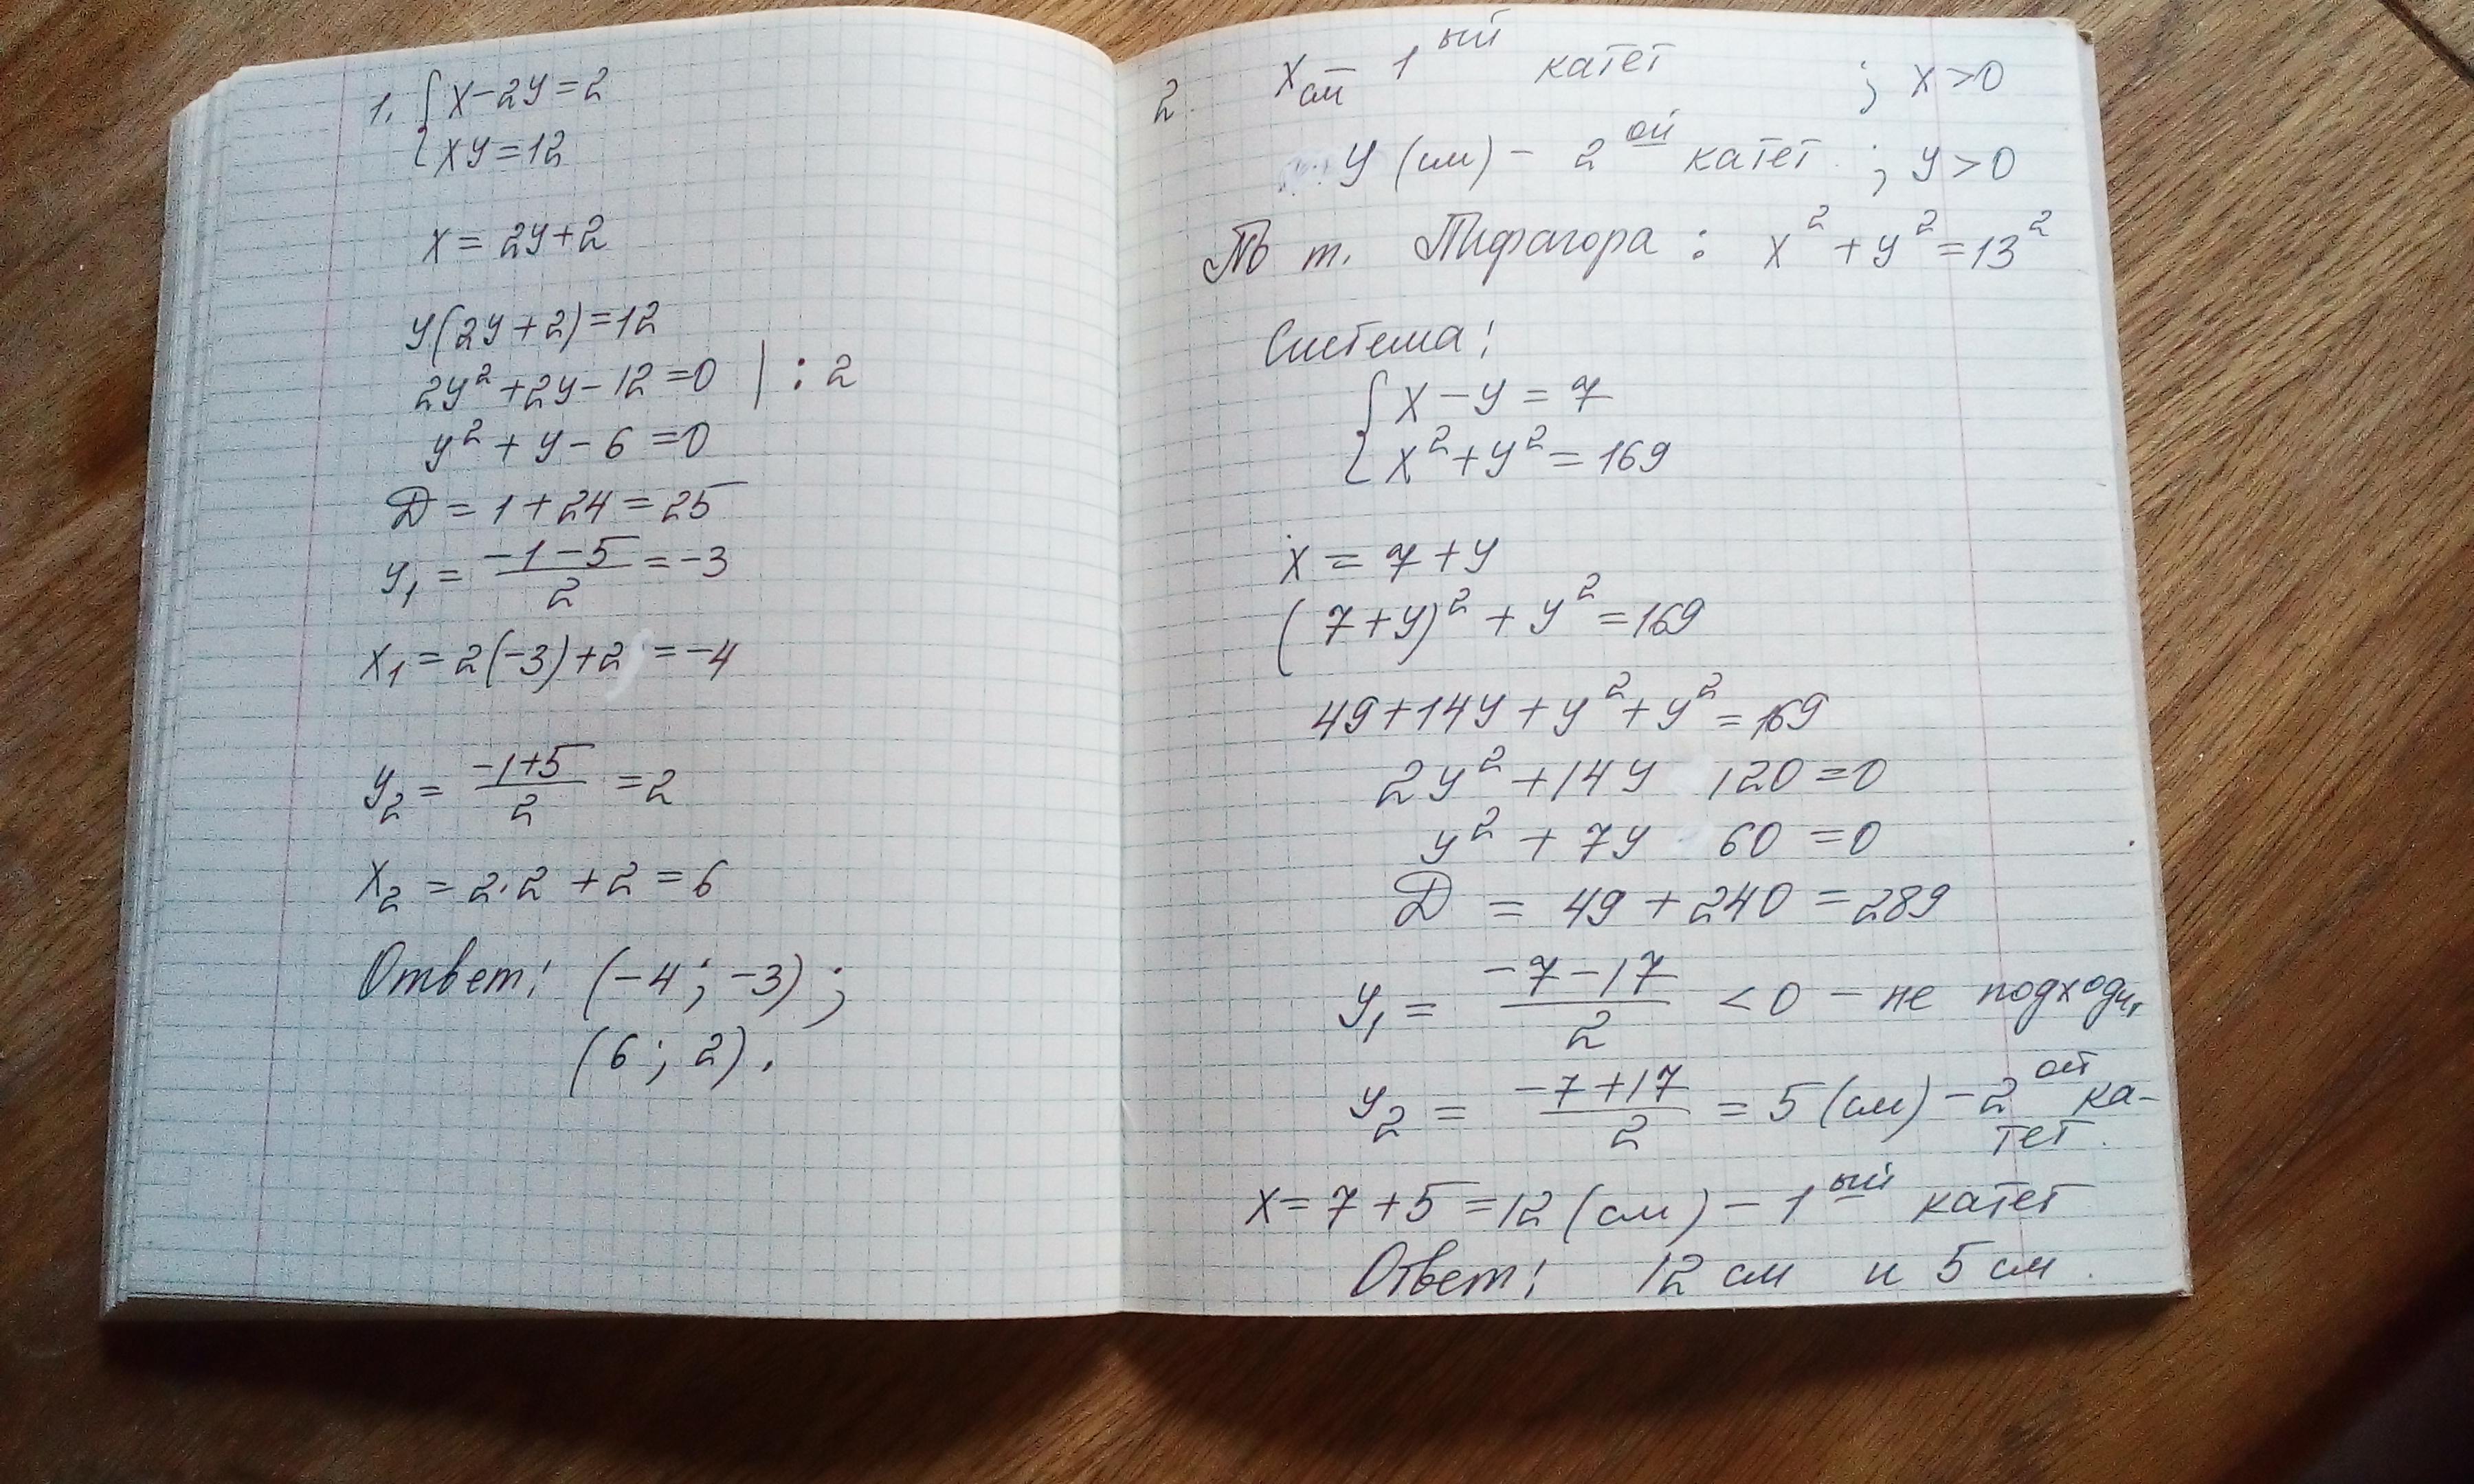 1. { x-2y=2
xy=12
x = 2y+2
y(2y+2)=12
2y²+2y-12=0 | : 2
y²+y-6=0
D = 1+24=25
y₁ = (-1-5)/2 = -3
x₁ = 2(-3)+2 = -4
y₂ = (-1+5)/2 = 2
x₂ = 2·2+2=6
Ответ: (-4; -3);
(6; 2).
2. x см - 1ый катет ; x>0
y (см) - 2ой катет ; y>0
По т. Пифагора : x²+y²=13²
Система:
{ x-y=7
x²+y²=169
x = 7+y
(7+y)²+y²=169
49+14y+y²+y²=169
2y²+14y 120=0
y²+7y 60=0
D = 49+240=289
y₁ = (-7-17)/2 <0 - не подходит
y₂ = (-7+17)/2 = 5 (см) - 2ой ка-
тет.
x=7+5=12 (см) - 1ый катет
Ответ: 12 см и 5 см.